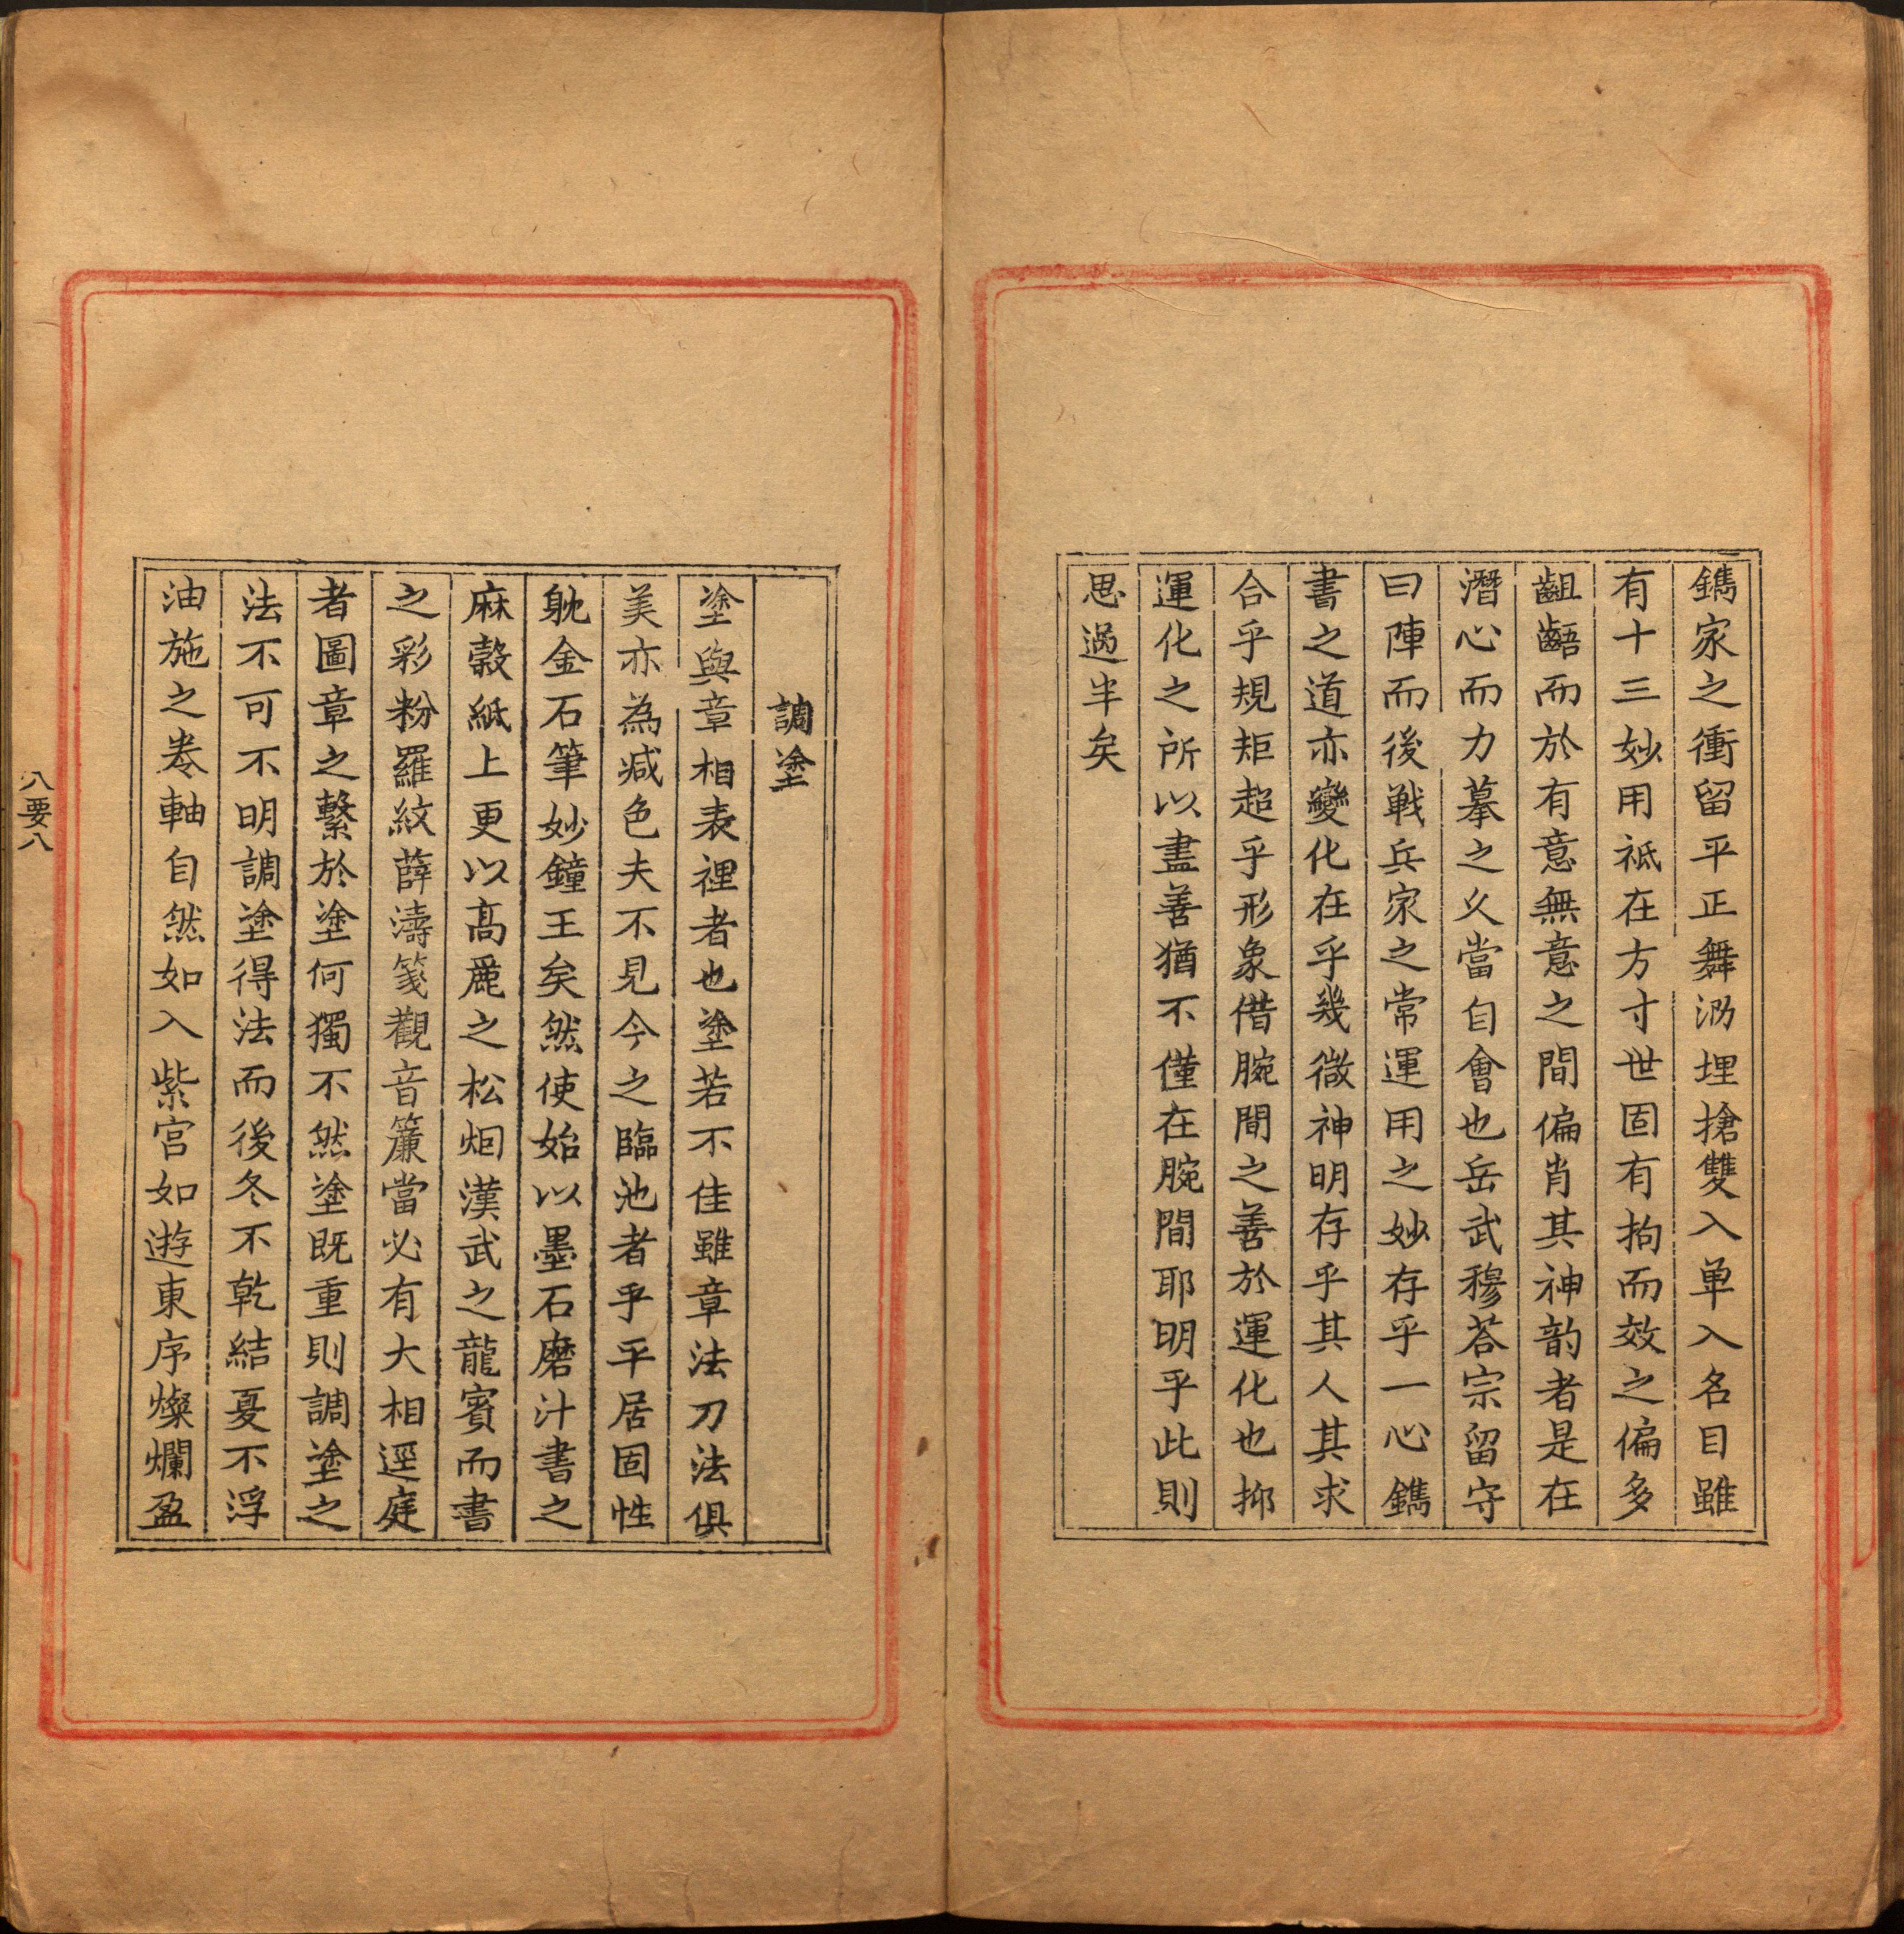 鐫家之衝留平正舞泐埋搶雙入单入名目雖
有十三妙用祗在方寸世固有拘而效之偏多
齟齬而於有意無意之間偏肖其神韵者是在
潛心而力摹之乆當自會也岳武穆荅宗留守
曰陣而後戦兵家之常運用之妙存乎一心鐫
書之道亦變化在乎幾微神明存乎其人其求
合乎規矩超乎形象借腕間之善於運化也抑
運化之所以盡善猶不僅在腕間耶明乎此則
思過半矣
調塗
塗與章相表裡者也塗若不佳雖章法刀法俱
美亦為减色夫不見今之臨池者乎平居固性
躭金石筆妙鐘王矣然使始以墨石磨汁書之
麻縠紙上更以髙麗之松烟漢武之龍賓而書
之彩粉羅紋薛濤箋觀音簾當必有大相逕庭
者圖章之繫於塗何獨不然塗既重則調塗之
法不可不明調塗得法而後冬不乾結夏不浮
油施之卷軸自然如入紫宮如遊東序燦爛盈
八要八